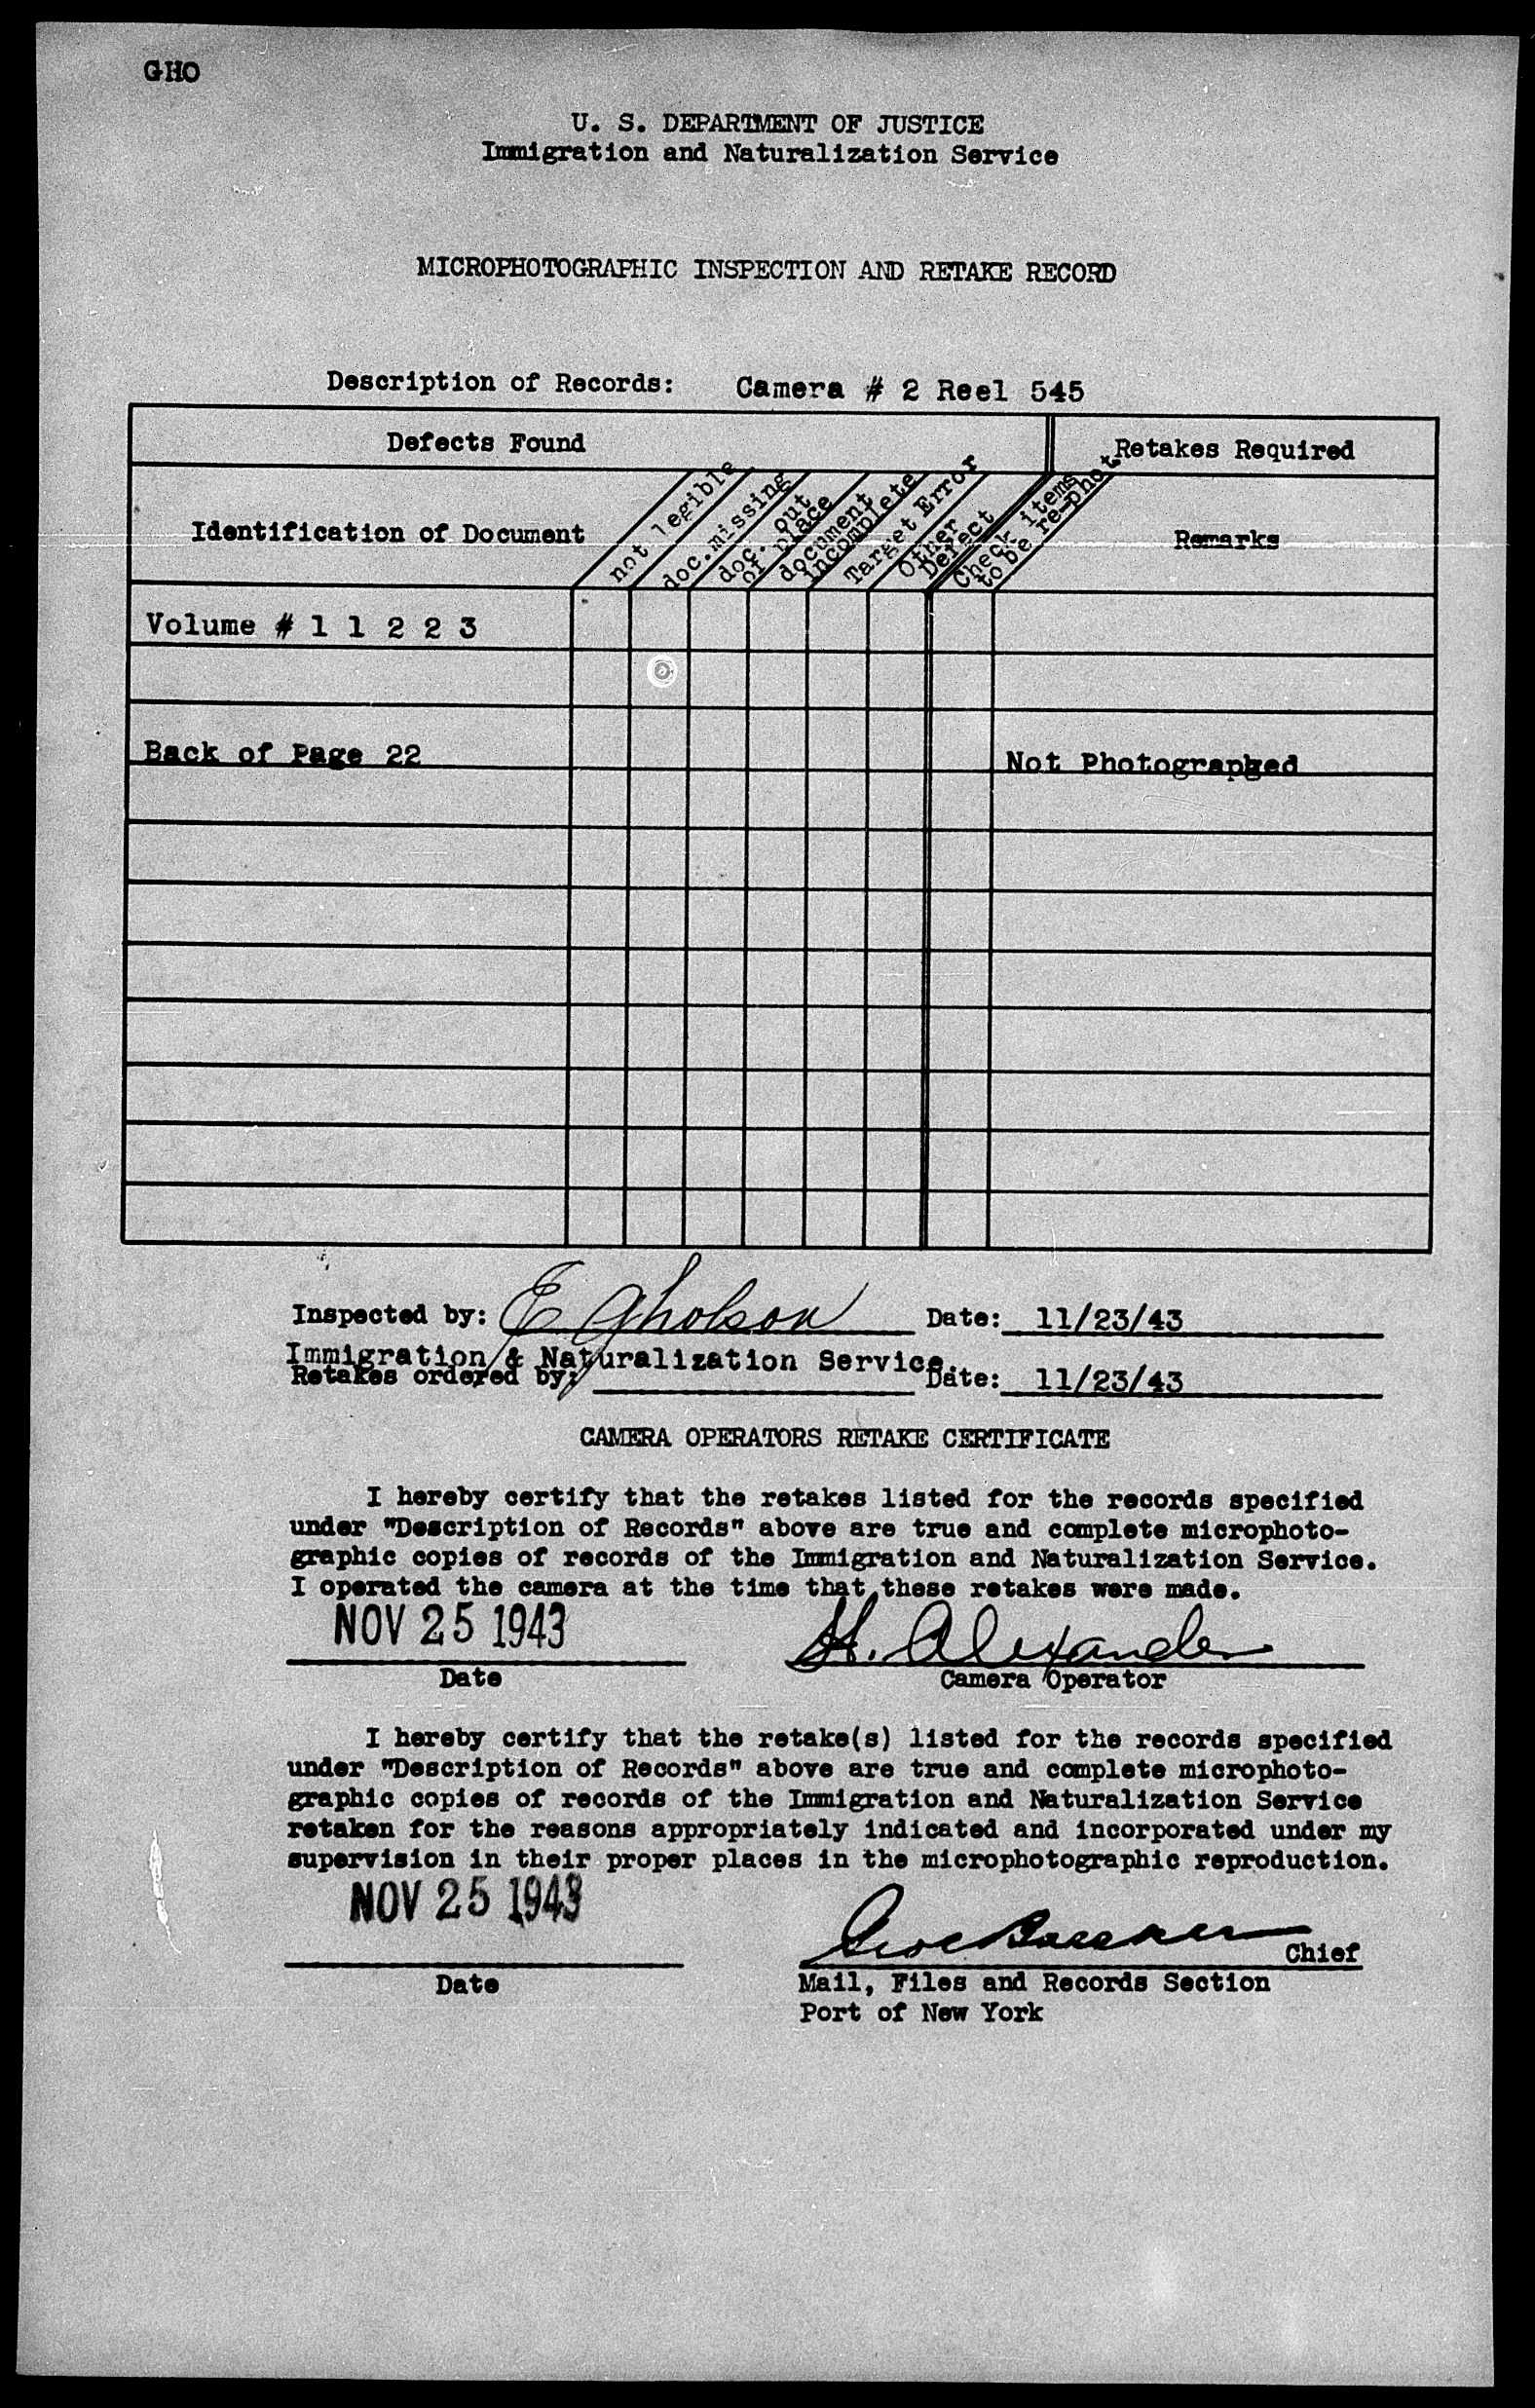 GHO
U. S. DEPARTMENT OF JUSTICE
Immigration and Naturalization Service
MICROPHOTOGRAPHIC INSPECTION AND RETAKE RECORD
Description of Records: Camera # 2 Reel 545
Defects Found
Retakes Required
Identification of Document
not legible
doc.missing
doc. out
of place
document
incomplete
Target Error
Other
Defect
Check items
to be re-phot
Remarks
Volume # 1 1 2 2 3
Back of Page 22
Not Photographed
Inspected by: E Gholson Date: 11/23/43
Immigration & Naturalization Service.
Retakes ordered by: Date: 11/23/43
CAMERA OPERATORS RETAKE CERTIFICATE
I hereby certify that the retakes listed for the records specified
under "Description of Records" above are true and complete microphoto-
graphic copies of records of the Immigration and Naturalization Service.
I operated the camera at the time that these retakes were made.
NOV 25 1943
H. Alexander
Date
Camera Operator
I hereby certify that the retake(s) listed for the records specified
under "Description of Records" above are true and complete microphoto-
graphic copies of records of the Immigration and Naturalization Service
retaken for the reasons appropriately indicated and incorporated under my
supervision in their proper places in the microphotographic reproduction.
NOV 25 1943
Chief
Date
Mail, Files and Records Section
Port of New York